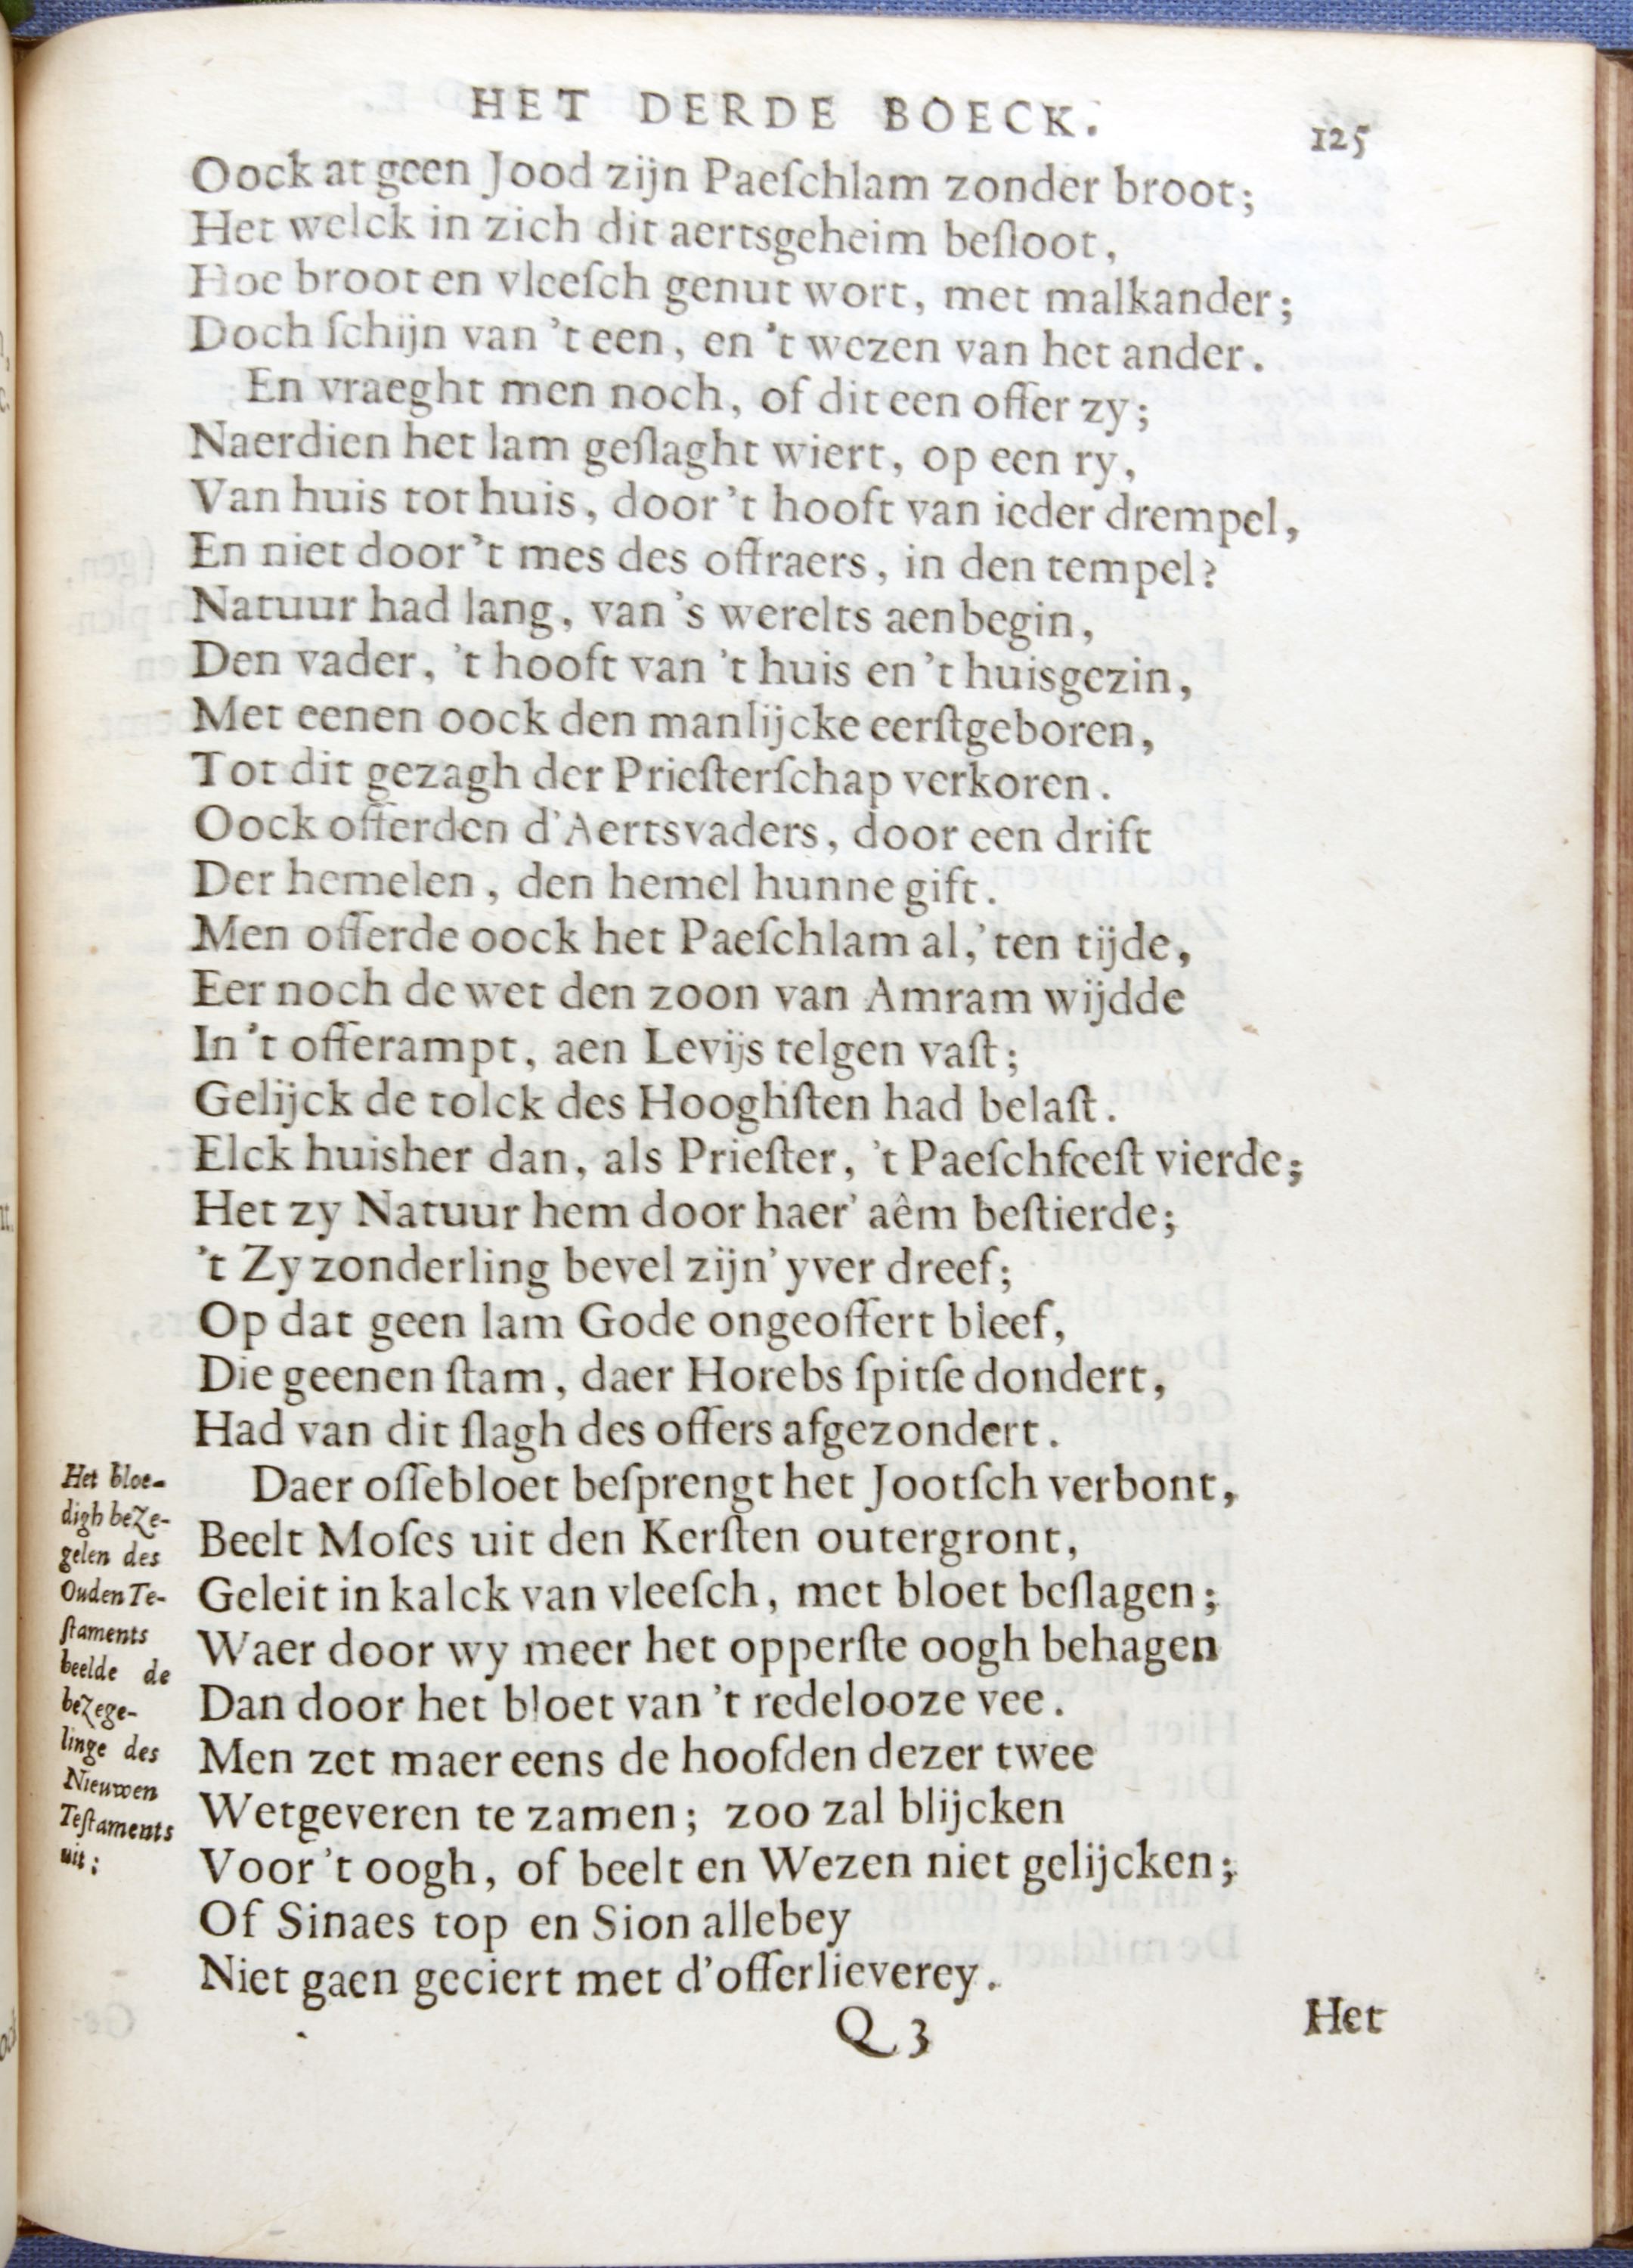 HET DERDE BOECK.
125
Oock at geen Jood zijn Paeſchlam zonder broot;
Het welck in zich dit aertsgeheim beſloot,
Hoe broot en vleeſch genut wort, met malkander;
Doch ſchijn van 't een, en 't wezen van het ander.
En vraeght men noch, of dit een offer zy;
Naerdien het lam geſlaght wiert, op een ry,
Van huis tot huis, door 't hooft van ieder drempel,
En niet door 't mes des offraers, in den tempel?
Natuur had lang, van 's werelts aenbegin,
Den vader, 't hooft van 't huis en 't huisgezin,
Met eenen oock den manlijcke eerſtgeboren,
Tot dit gezagh der Prieſterſchap verkoren.
Oock offerden d'Aertsvaders, door een drift
Der hemelen, den hemel hunne gift.
Men offerde oock het Paeſchlam al,' ten tijde,
Eer noch de wet den zoon van Amram wijdde
In 't offerampt, aen Levijs telgen vaſt;
Gelijck de tolck des Hooghſten had belaſt.
Elck huisher dan, als Prieſter, 't Paeſchfeeſt vierde;
Het zy Natuur hem door haer' aêm beſtierde;
't Zy zonderling bevel zijn' yver dreef;
Op dat geen lam Gode ongeoffert bleef,
Die geenen ſtam, daer Horebs ſpitſe dondert,
Had van dit ſlagh des offers afgezondert.
Daer oſſebloet beſprengt het Jootſch verbont,
Beelt Moſes uit den Kerſten outergront,
Geleit in kalck van vleeſch, met bloet beſlagen;
Waer door wy meer het opperſte oogh behagen
Dan door het bloet van 't redelooze vee.
Men zet maer eens de hoofden dezer twee
Wetgeveren te zamen; zoo zal blijcken
Voor 't oogh, of beelt en Wezen niet gelijcken;
Of Sinaes top en Sion allebey
Niet gaen geciert met d'offerlieverey.
Het bloe-
digh beze-
gelen des
Ouden Te-
ſtaments
beelde de
bezege-
linge des
Nieuwen
Teſtaments
uit;
Q 3
Het